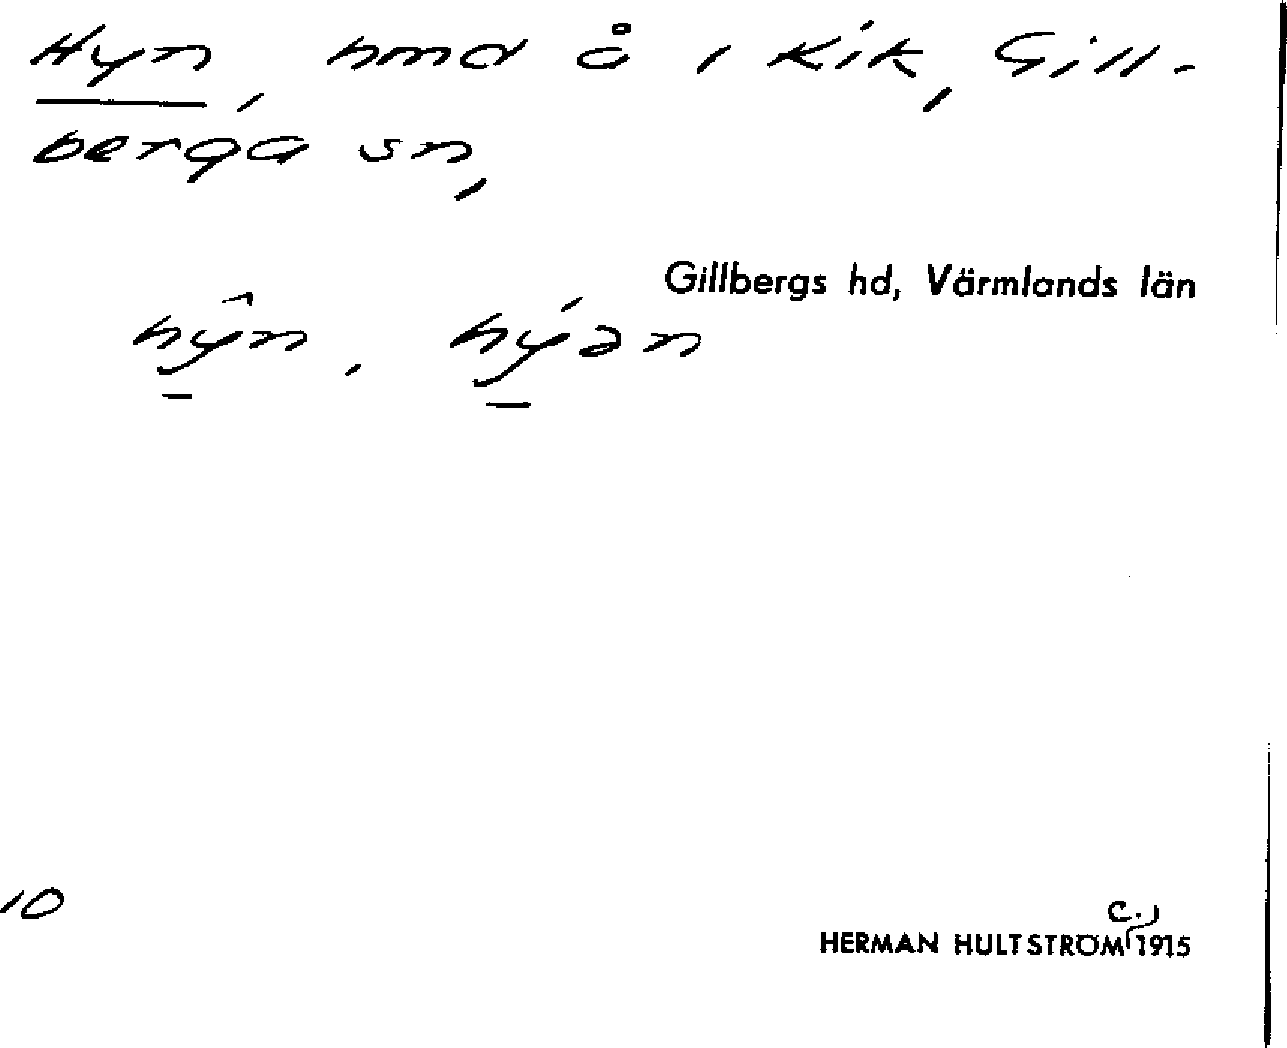 Hyn, hmd å i Kik, Gill-
berga sn,
Gillbergs hd, Värmlands län
hŷn, hýən
10
c.
HERMAN HULTSTRÖM 1915